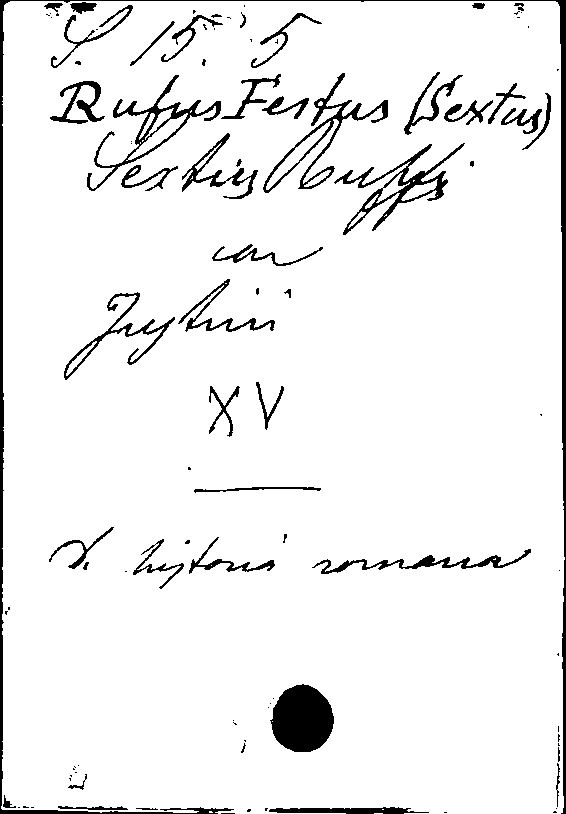 S. 15. 5
Rufus Festus (Sextus)
Sextus Ruffus
cum
Justini
XV
V. historia romana